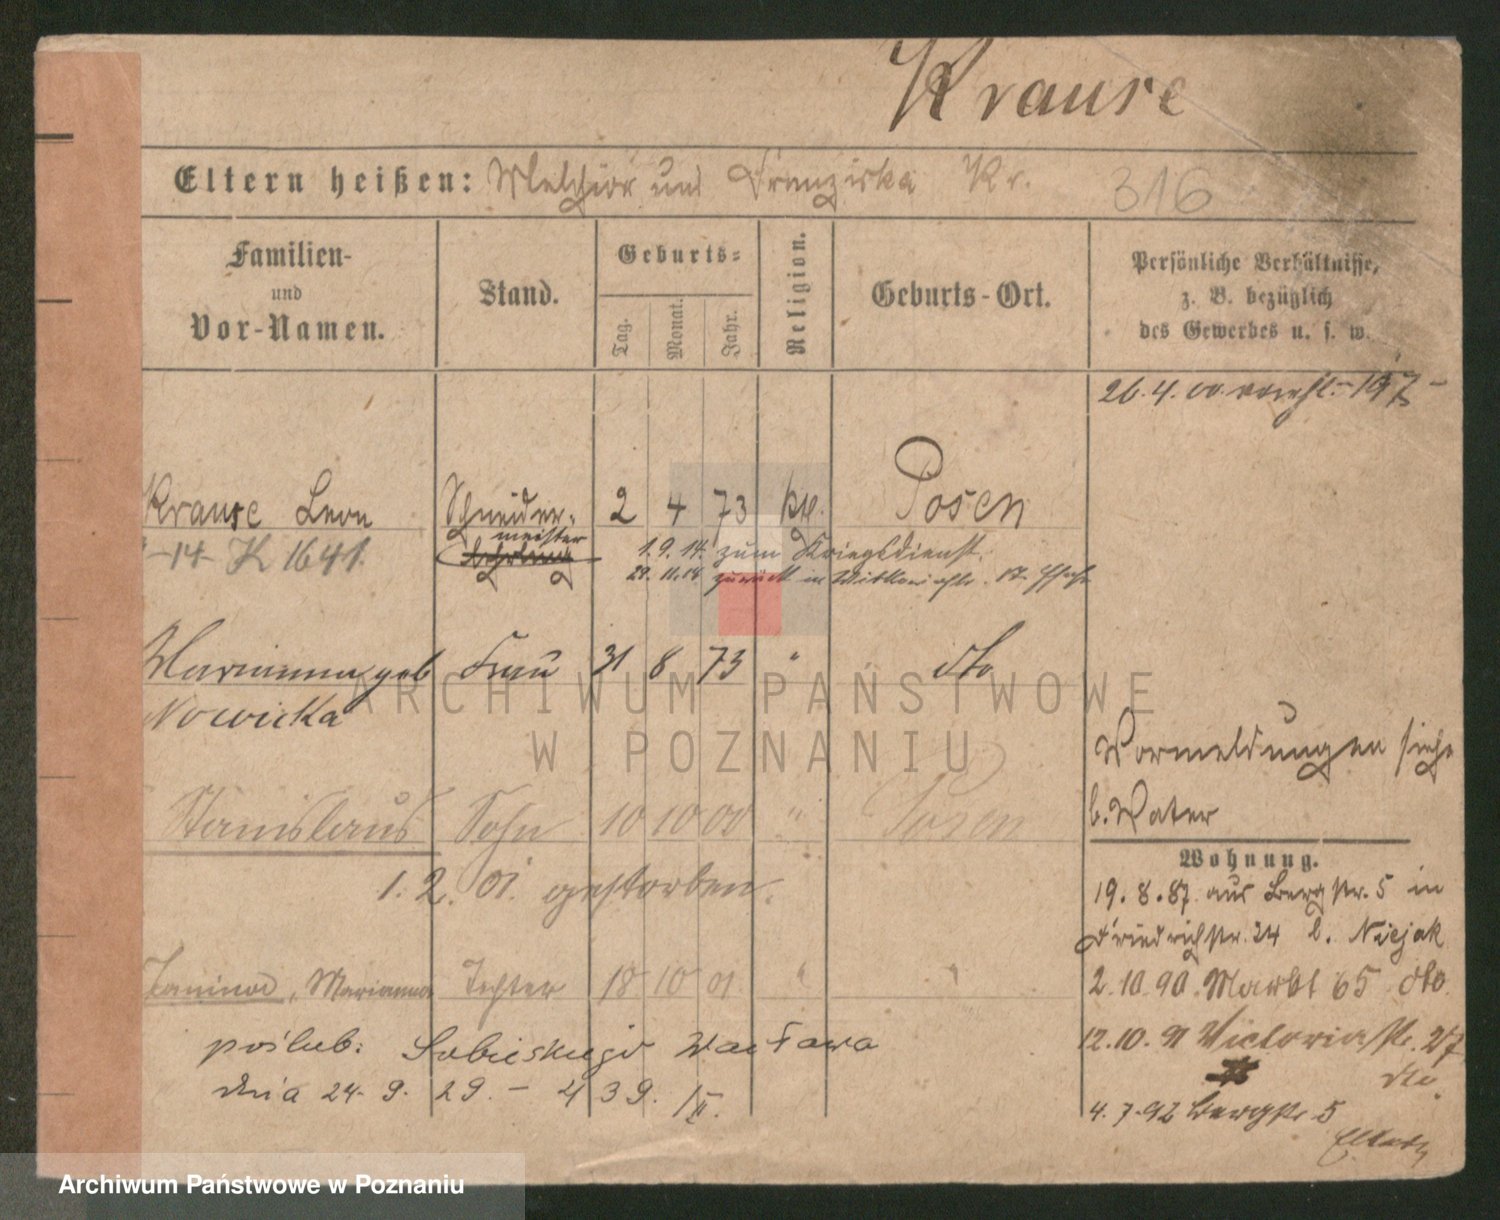 Krause
Eltern heißen: Melchior und Franziska Kr. 316
Familien- und Vor-Namen.
Stand.
Geburts-
Tag. Monat. Jahr.
Religion.
Geburts-Ort.
Persönliche Verhältnisse,
z. B. bezüglich
des Gewerbes u. s. w.
26.4.00.
Krause Leon Schneider- 2 4 73 ktl. Posen
meister
-14- K 1641. Lehrling
1.9.14. zum Kriegsdienst.
zurück in
Marianna geb Frau 31 8 73 " dto
Nowicka
Vormeldungen siehe
b. Vater
Stanislaus Sohn 10 10 00 " Posen
1. 2. 01. gestorben.
Wohnung.
19.8.87. aus Bergstr. 5 in
Friedrichstr. 24 b. Niejak
Marianna Tochter 18 10 01. " "
2.10.90. Markt 65 dto.
poślub: Sobieskiego Wacława
12.10.91 Victoriastr. 27
dto.
dnia 24. 9. 29 - 439. /II.
4.7.92 Bergstr. 5
Eltern
ARCHIWUM PAŃSTWOWE
W POZNANIU
Archiwum Państwowe w Poznaniu